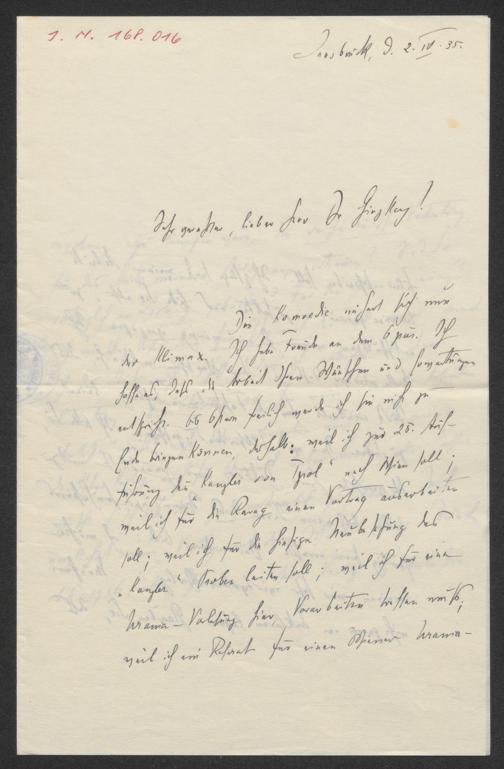 J. N. 168.016
Innsbruck, d. 2. IV. 35.
Sehr geehrter, lieber Herr Dr Ginzkey!
Die Komoedie nähert sich nun
der Klimax. Ich habe Freude an dem Opus. Ich
hoffe, dass die Arbeit Ihren Wünschen und Erwartungen
entspricht. Bis Ostern freilich werde ich sie nicht zu
Ende bringen können, deshalb: weil ich zur 25. Auf-
führung des "Kanzler von Tyrol" nach Wien soll;
weil ich für die Ravag einen Vortrag ausarbeiten
soll; weil ich für die hiesige Neubesetzung des
"Kanzler" Proben leiten soll; weil ich für eine
Urania-Vorlesung hier Vorarbeiten treffen muss;
weil ich ein Referat für einen Wiener Urania-